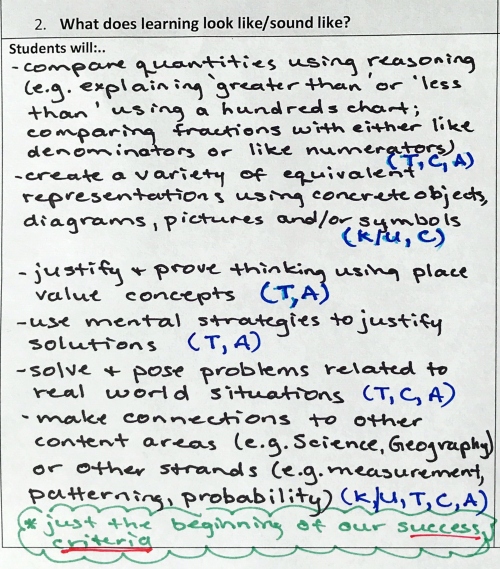 2. What does learning look like/sound like?
Students will:..
-compare quantities using reasoning
(e.g. explaining 'greater than' or 'less
than' using a hundreds chart;
comparing fractions with either like
denominators or like numerators)
(T, C, A)
-create a variety of equivalent
representations using concrete objects,
diagrams, pictures and/or symbols
(K/U, C)
-justify + prove thinking using place
value concepts (T, A)
-use mental strategies to justify
solutions (T, A)
-solve + pose problems related to
real world situations (T, C, A)
-make connections to other
content areas (e.g. Science, Geography)
or other strands (e.g. measurement,
patterning, probability) (K/U, T, C, A)
* just the beginning of our success
criteria